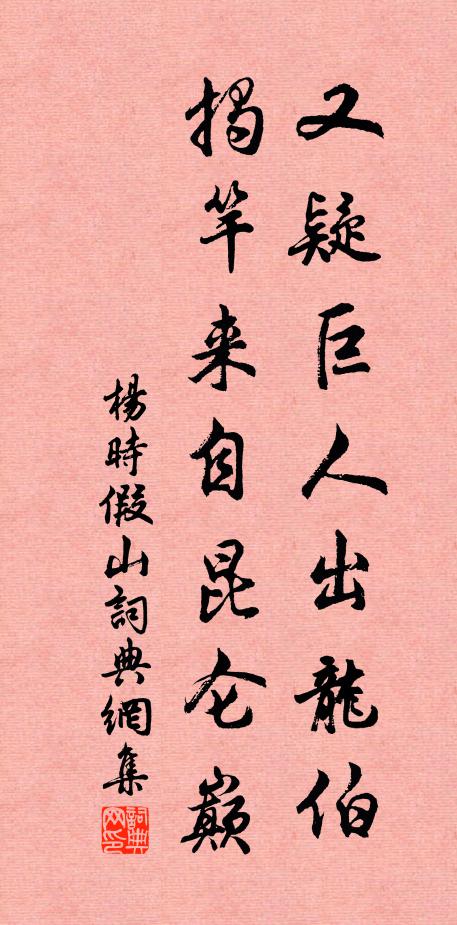 又疑巨人出龍伯
揭竿来自昆仑巔
楊時假山詞典網集
詞典网印